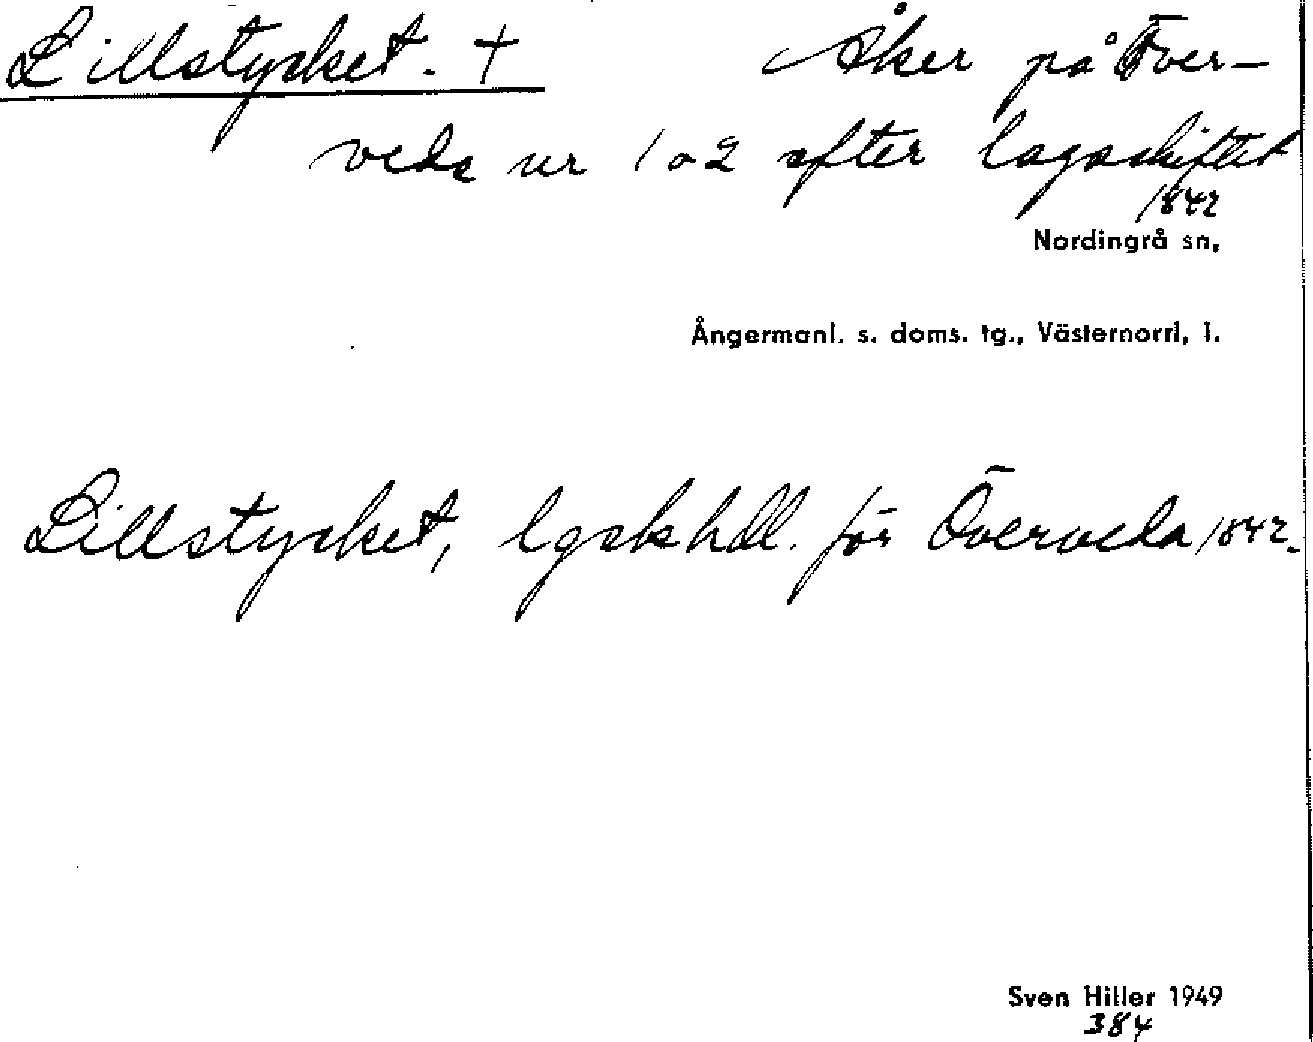 Lillstycket. + Åker på Över-
veda nr 1 o 2 efter lagaskiftet
1842
Nordingrå sn,
Ångermanl. s. doms. tg., Västernorrl, l.
Lillstycket, lgskhdl. för Överveda 1842.
Sven Hiller 1949
384